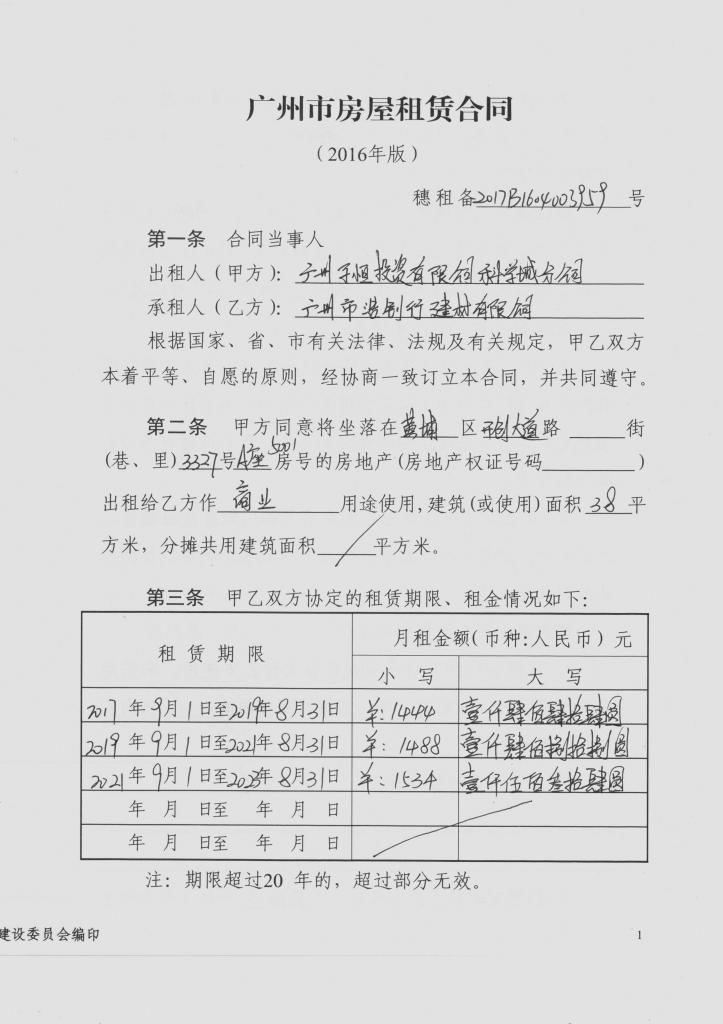 广州市房屋租赁合同
（2016年版）
穗租备2017B1604003959号
第一条 合同当事人
出租人（甲方）：广州 恒投资有限公司科学城分公司
承租人（乙方）：广州市 行建材有限公司
根据国家、省、市有关法律、法规及有关规定，甲乙双方
本着平等、自愿的原则，经协商一致订立本合同，并共同遵守。
第二条 甲方同意将坐落在黄埔区开创大道路 街
(巷、里) 3327号A座5001房号的房地产(房地产权证号码 )
出租给乙方作 商业 用途使用, 建筑(或使用)面积 38 平
方米，分摊共用建筑面积 / 平方米。
第三条 甲乙双方协定的租赁期限、租金情况如下：
租赁期限 月租金额(币种:人民币) 元
小写 大写
2017年9月1日至2019年8月31日 ¥: 1444 壹仟肆佰肆拾肆圆
2019年9月1日至2021年8月31日 ¥: 1488 壹仟肆佰捌拾捌圆
2021年9月1日至2023年8月31日 ¥: 1534 壹仟伍佰叁拾肆圆
年 月 日至 年 月 日
年 月 日至 年 月 日
注：期限超过20 年的，超过部分无效。
建设委员会编印 1